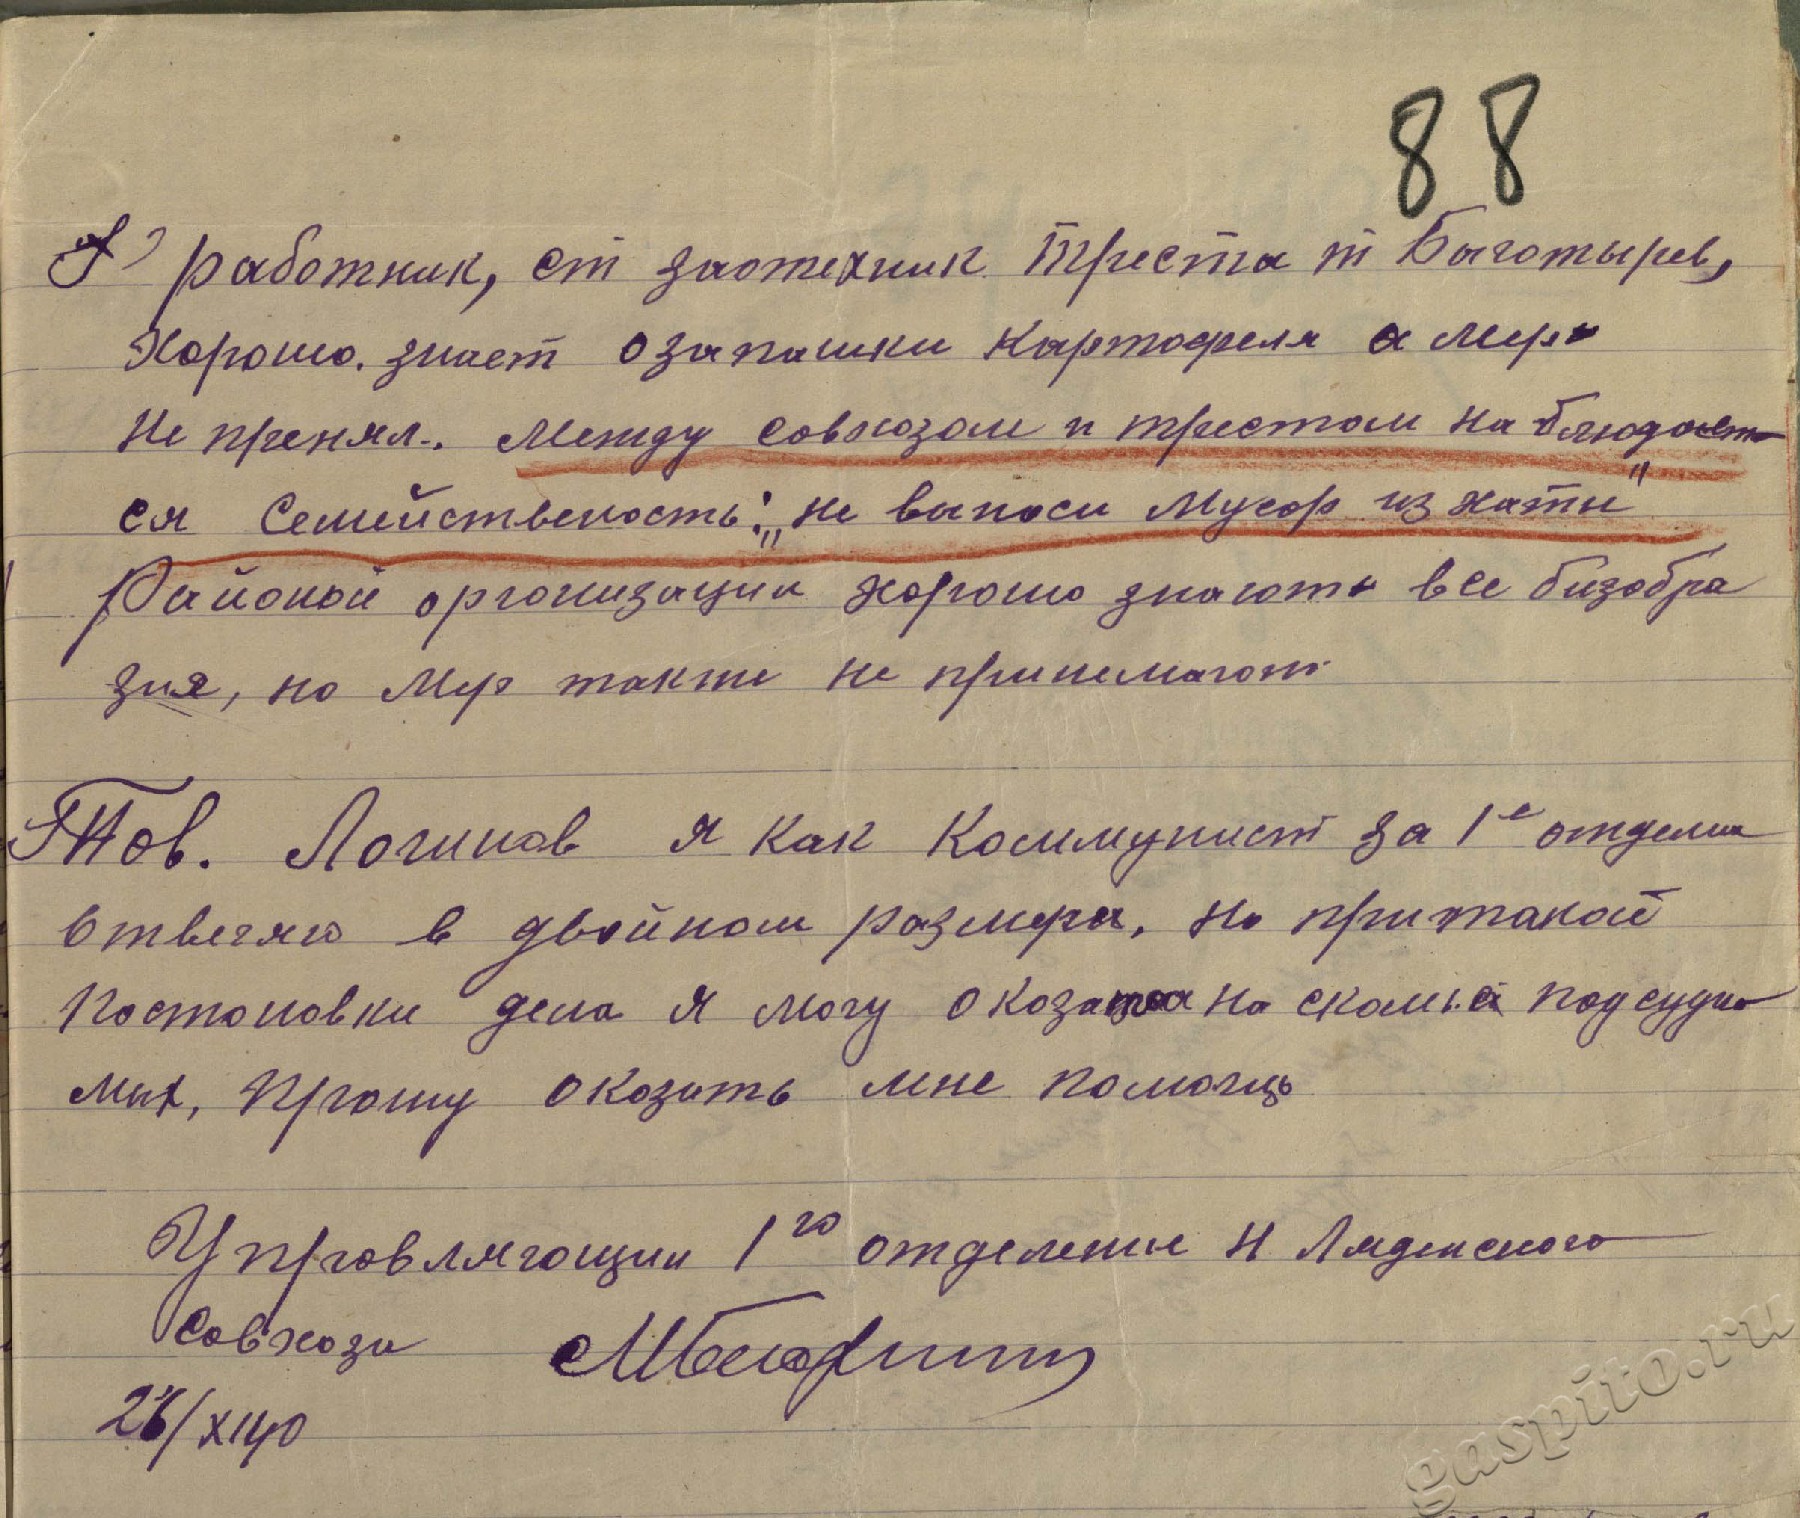 88
работник, ст заотехник треста т Баготырев,
Хорошо. знает о запашки картофеля а мер
не пренял. Между совхозом и трестом наблюдает
ся Семействености: „не выноси мусор из хаты"
Районой организации хорошо знают все бизобра
зия, но мер также не принемают
Тов. Логинов я как Коммунист за 1е отделин
отвечяю в двойном размери, но при такой
Постоновки дела я могу оказатся на скамье подсуди
мых, Прошу оказать мне помощь
Управляющии 1го отделение Н Лядинского
Совхоза
26/XI40
gaspito.ru